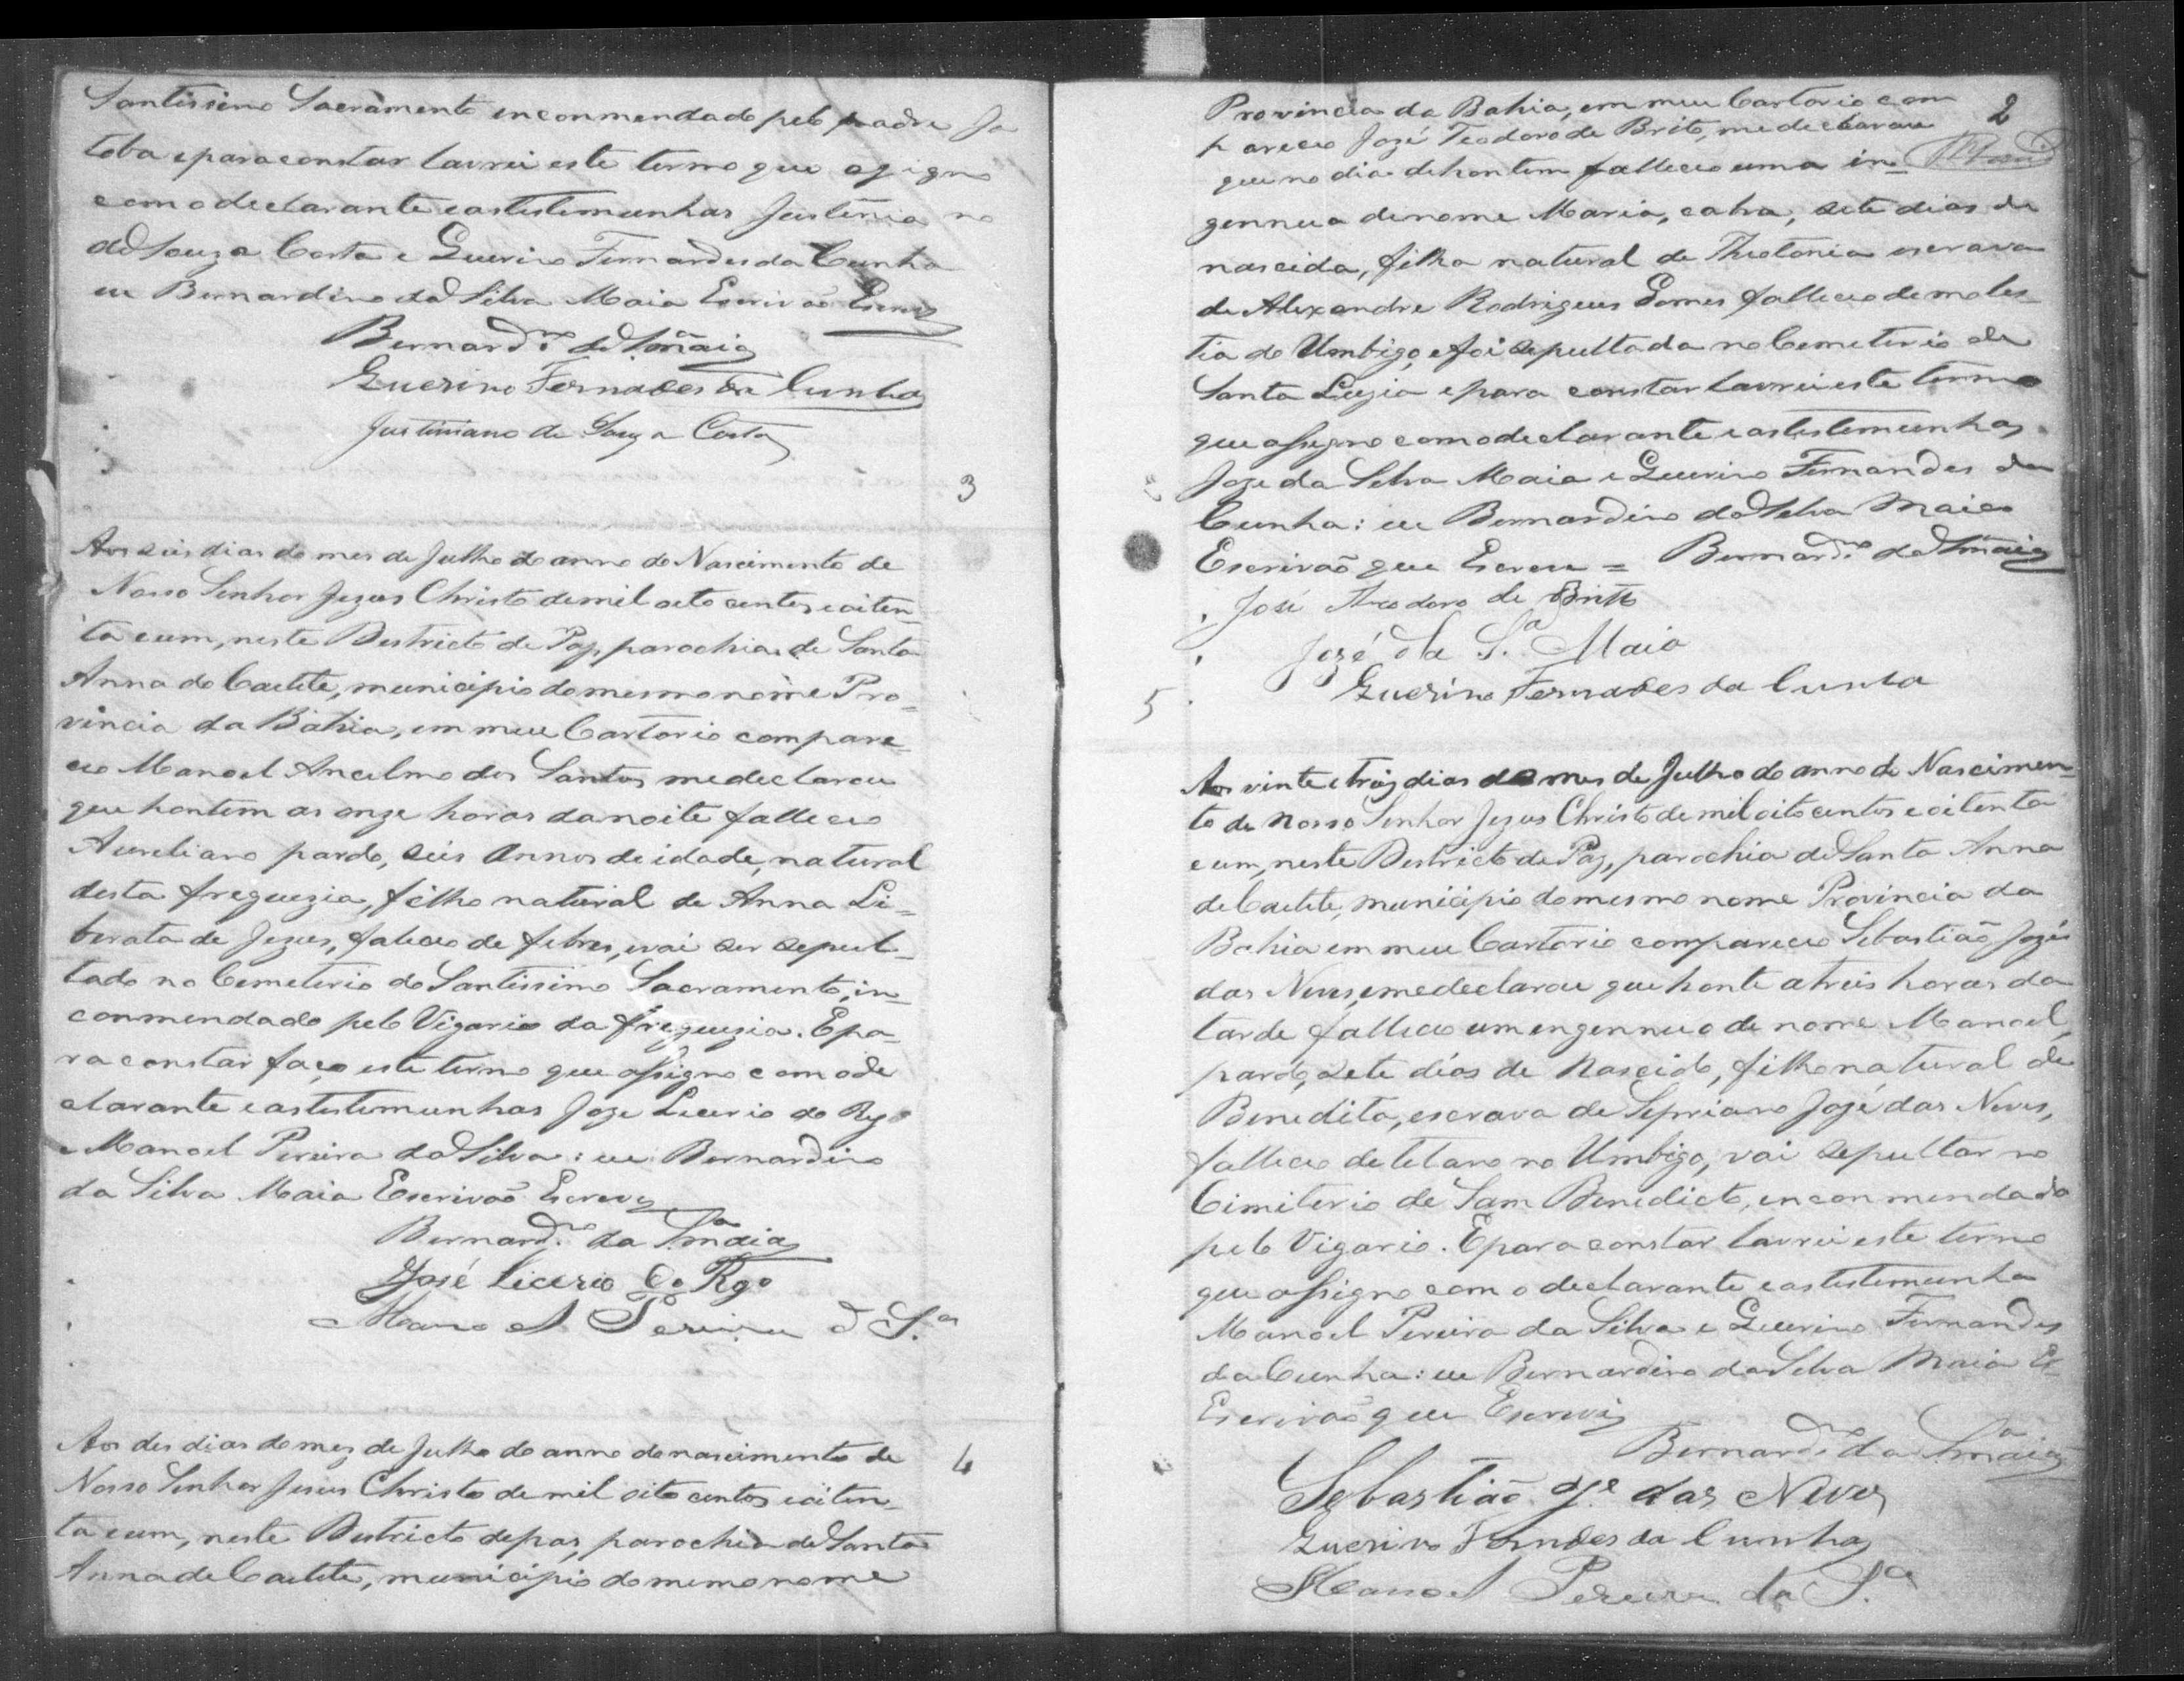 Santissimo Sacramento enconmendado pelo padre Ja
toba e para constar lavrei este termo que assigno
com o declarante e as testemunhas Justinia no
de Souza Costa e Guerino Fernandes da Cunha
eu Bernardino da Silva Maia Escrivaõ Escrevy
Bernard.no da S.a Maia
Guerino Fernades da Cunha
Justiniano de Souza Costa
3
Aos seis dias do mes de Julho do anno do Nascimento de
Nosso Senhor Jezus Christo de mil oito centos e oiten_
ta e um, neste Destricto de Paz, parochia de Santa
Anna do Caetete, municipio do mesmo nome Pro_
vincia da Bahia, em meu Cartorio compare_
ceo Manoel Ancelmo dos Santos me declarou
que hontem as onze horas da noite falleceo
Aureliano pardo, seis annos de idade, natural
desta freguezia, filho natural de Anna Li_
berata de Jezus, faleceo de febres, e vai ser sepul_
tado no Cemeterio do Santissimo Sacramento, in_
conmendado pelo Vigario da freguezia. E pa_
ra constar faço este termo que assigno com o de
clarante e as testemunhas Joze Licerio do Rego
e Manoel Pereira da Silva: eu Bernardino
da Silva Maia Escrivaõ Escrevy
Bernard.no da S.a Maia
José Licerio do Rego
Manoel Pereira d S.a
4
Aos des dias do mez de Julho do anno do nascimento de
Nosso Senhor Jesus Christo de mil oito centos e oiten_
ta e um, neste Destricto de pas, parochia de Santa
Anna de Caetete, municipio do memo nome
2
Provincia da Bahia, em meu Cartorio com
pareceo Jozé Teodoro de Brito, me declarou
que no dia de hontem falleceo uma in_
gennua de nome Maria, cabra, sete dias de
nascida, filha natural de Theotonia escrava
de Alexandre Rodrigues Gomes falleceo de moles_
tia do Umbigo, e foi sepultada no Cemeterio de
Santa Luzia e para constar lavrei este termo
que assigno com o declarante e as testemunhas
Joze da Silva Maia e Guerino Fernandes da
Cunha: eu Bernardino da Silva Maia
Escrivaõ que Escrevi = Bernard.no da S.a Maia
José Theodoro de Britto
José da S.a Maia
Guerino Fernades da Cunha
5
Aos vinte e trez dias do mes de Julho do anno de Nascimen_
to de Nosso Senhor Jezus Christo de mil oito centos e oitenta
e um, neste Destricto de Paz, parochia de Santa Anna
de Caetete, municipio do mesmo nome Provincia da
Bahia em meu Cartorio compareceo Sebastiaõ Jozé
das Neves, e me declarou que honte a treis horas da
tarde falleceo um engennuo de nome Manoel,
pardo, sete dias de Nascido, filho natural de
Benedita, escrava de Sepriano José das Neves,
falleceo de tetano no Umbigo, vai sepultar no
Cimiterio de Sam Benedicto, enconmendado
pelo Vigario. E para constar lavrei este termo
que assigno com o declarante e as testemunha
Manoel Pereira da Silva e Guerino Fernandes
da Cunha: eu Bernardino da Silva Maia Es_
Escrivaõ que Escrevi
Bernard.no da S.a Maia
Sebastião Je. das Neves
Guerino Fernades da Cunha
Manoel Pereira da S.a